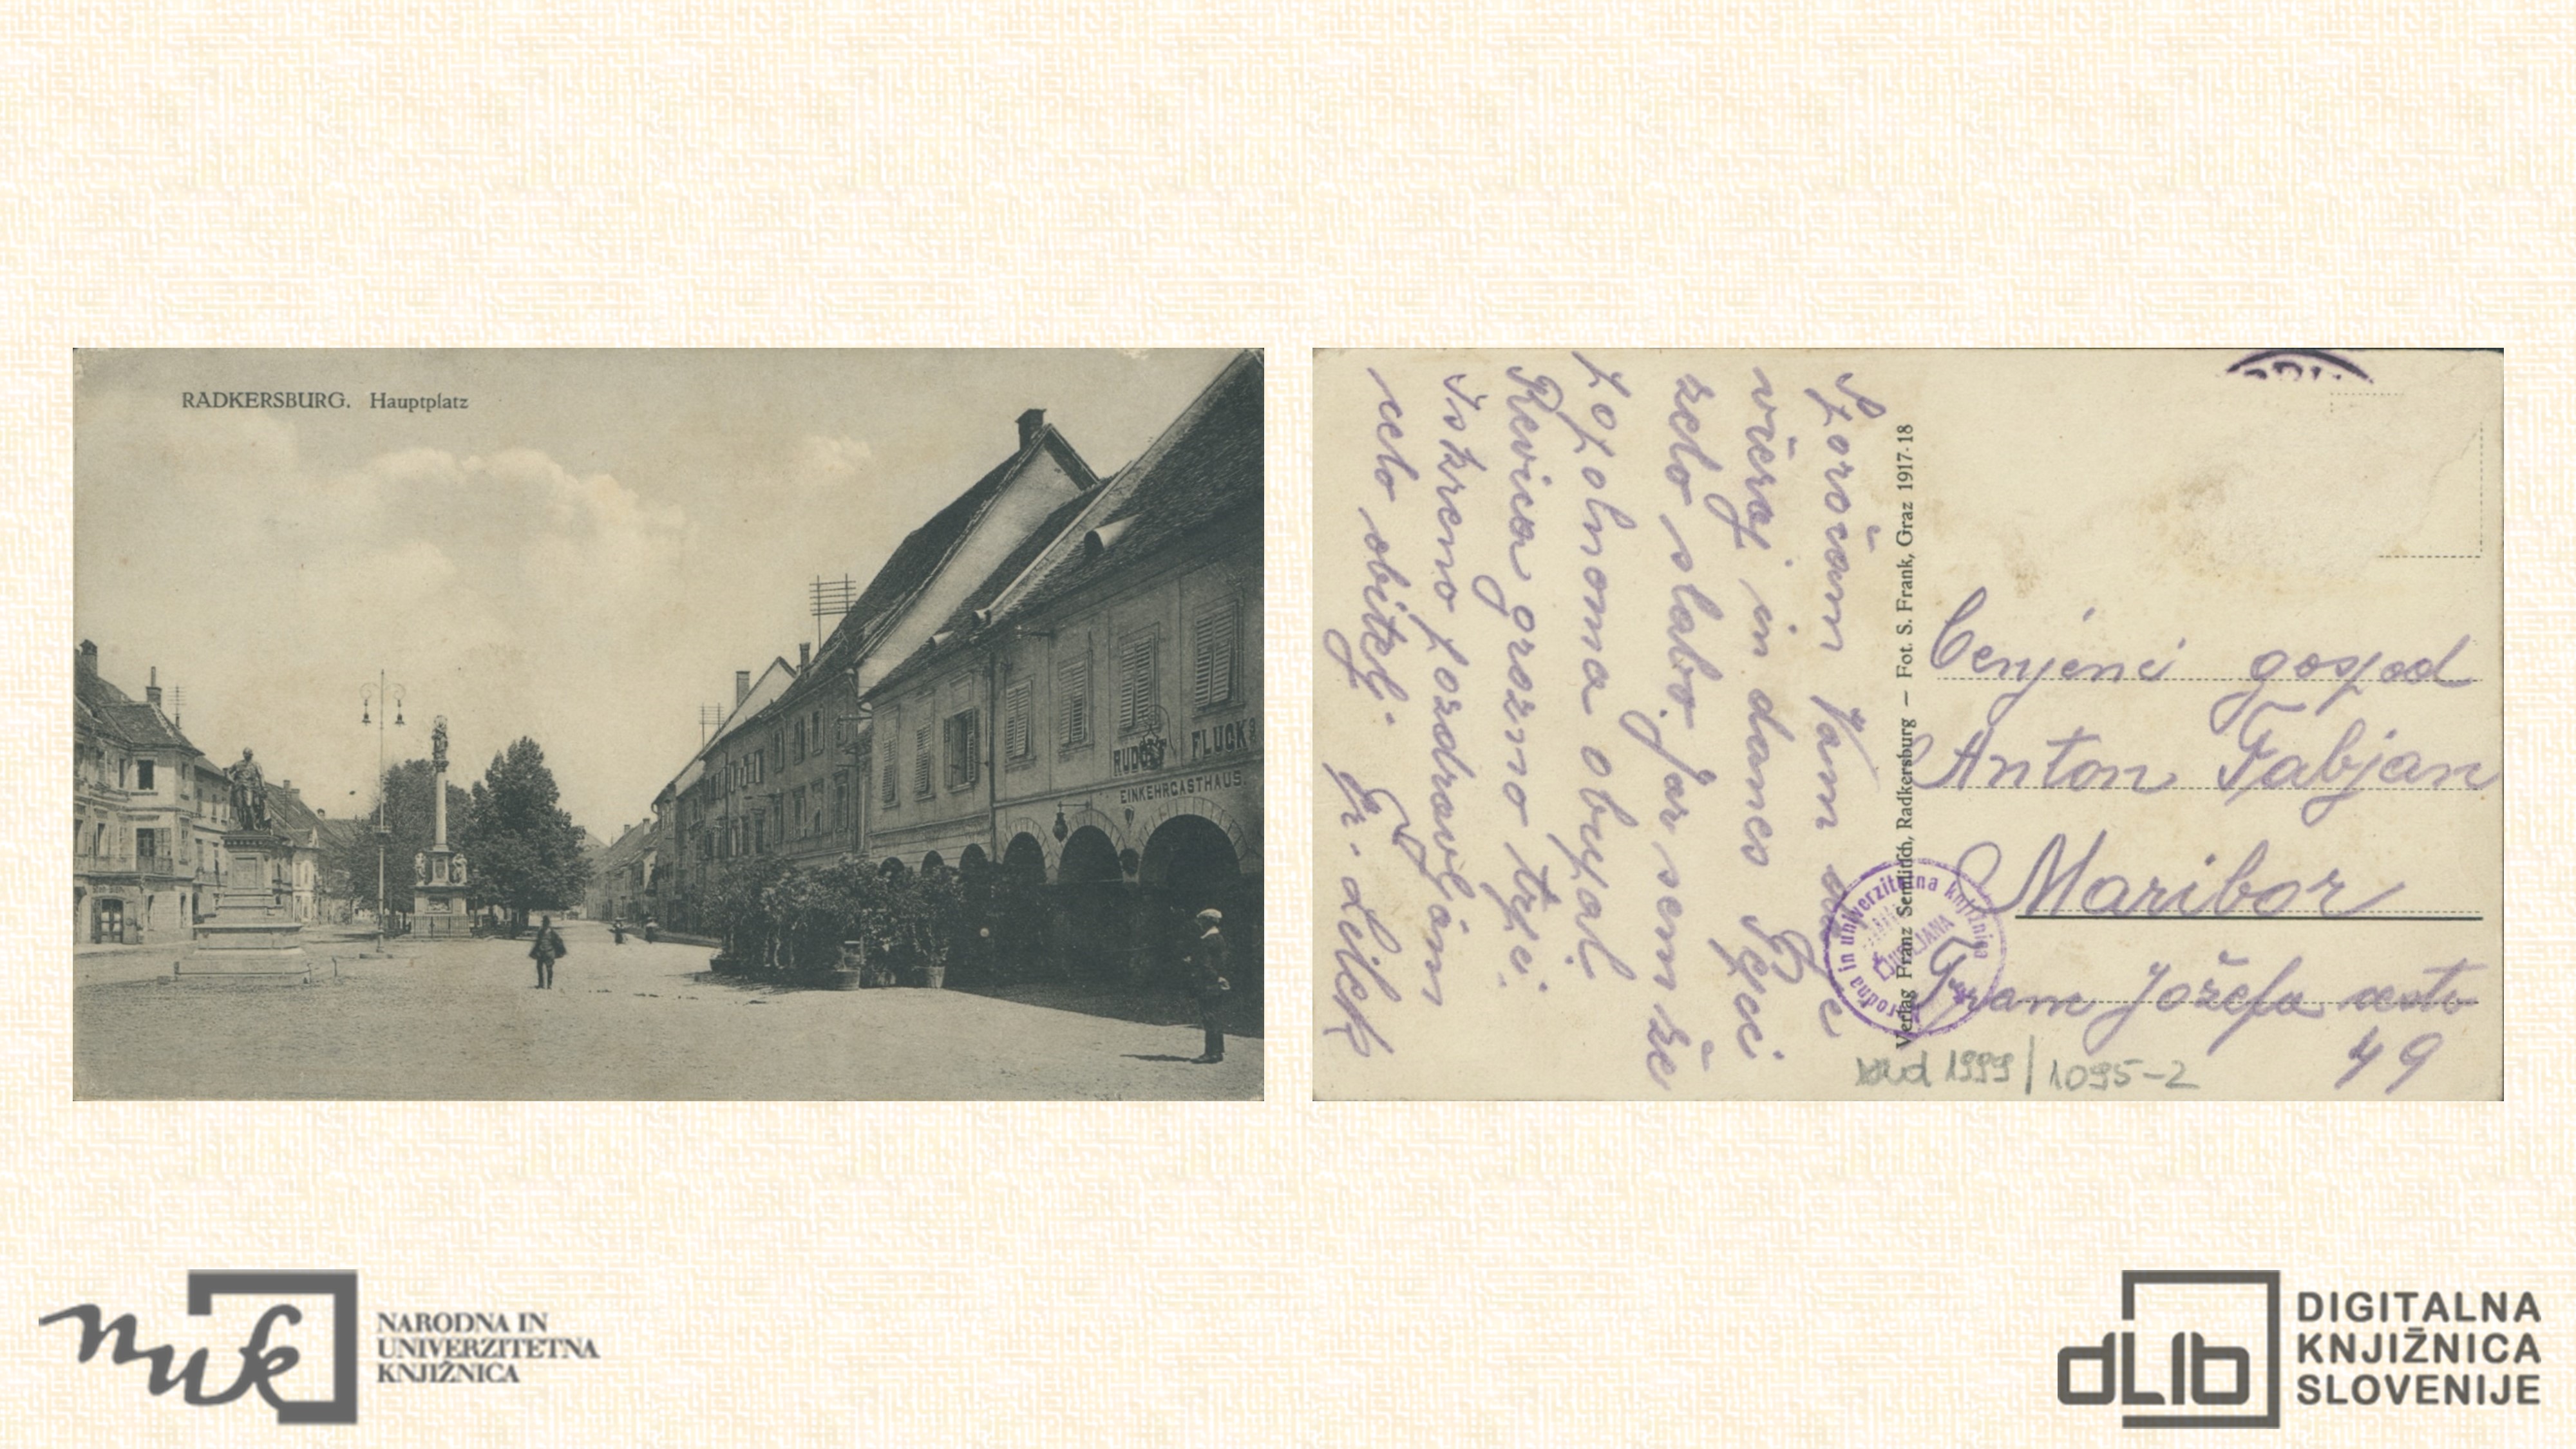 RADKERSBURG. Hauptplatz
RUDOLF FLUCK
EINKEHRGASTHAUS.
Sporočam Vam
včeraj in danes
zelo slabo, jaz sem že
popolnoma obupal.
Revica grozno trpi.
Iskreno pozdravljam
celo obitelj.
Verlag Franz Semlitsch, Radkersburg — Fot. S. Frank, Graz 1917-18
Cenjeni gospod
Anton Fabjan
Maribor
Franc Jožefa cesta
49
Narodna in univerzitetna knjižnica
LJUBLJANA
1999/1095-2
nuk
NARODNA IN
UNIVERZITETNA
KNJIŽNICA
dLib
DIGITALNA
KNJIŽNICA
SLOVENIJE